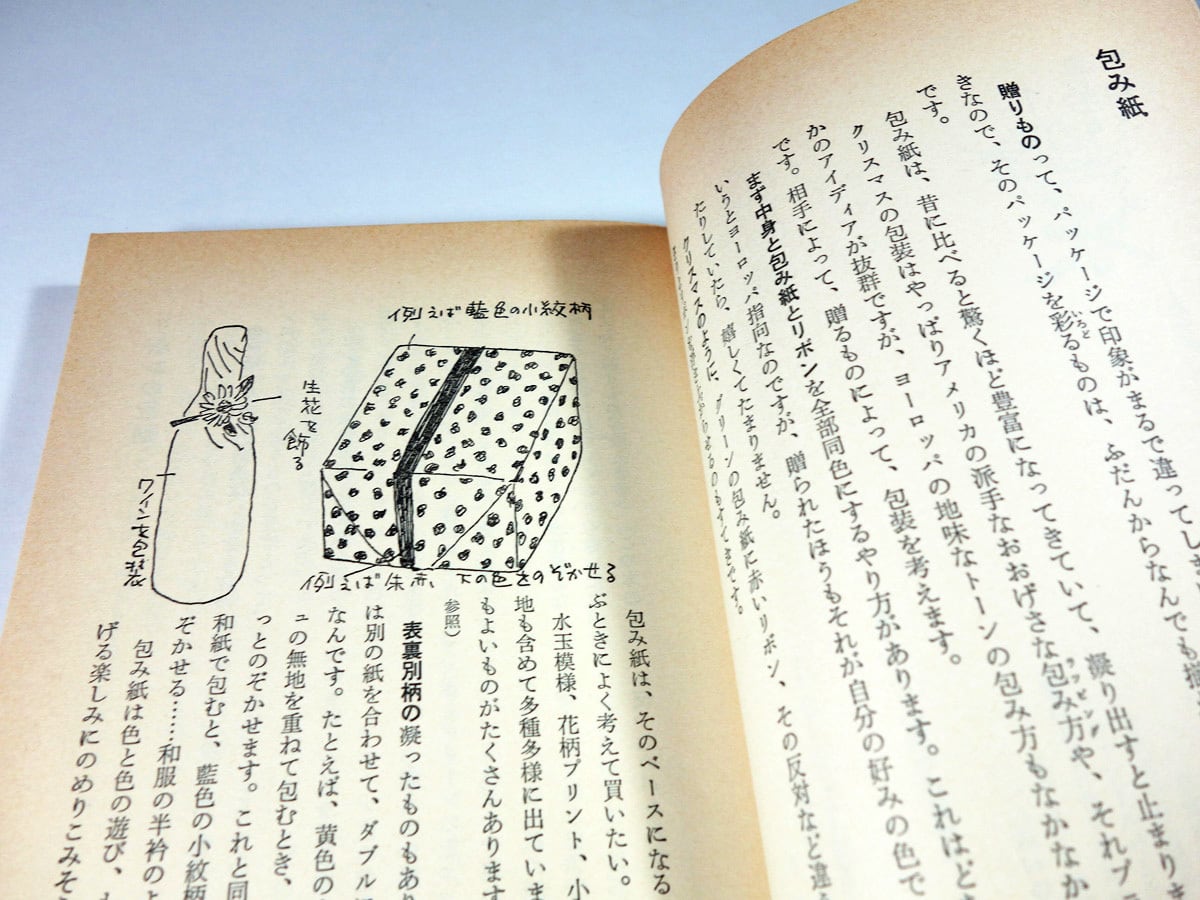 包み紙
贈りものって、パッケージで印象がまるで違ってしま
きなので、そのパッケージを彩るものは、ふだんからなんでも
いろど
です。
包み紙は、昔に比べると驚くほど豊富になってきていて、凝り出すと止まりま
クリスマスの包装はやっぱりアメリカの派手なおおげさな包み方や、それプ
ラッピング
かのアイディアが抜群ですが、ヨーロッパの地味なトーンの包み方もなかなか
です。相手によって、贈るものによって、包装を考えます。
まず中身と包み紙とリボンを全部同色にするやり方があります。これはど
いうとヨーロッパ指向なのですが、贈られたほうもそれが自分の好みの色で
たりしていたら、嬉しくてたまりません。
クリスマスのように、グリーンの包み紙に赤いリボン、その反対など違
例えば藍色の小紋柄
生花を飾る
ワインを包装
例えば朱赤
下の色をのぞかせる
包み紙は、そのベースになる
ぶときによく考えて買いたい。
水玉模様、花柄プリント、小
地も含めて多種多様に出ていま
もよいものがたくさんあります
参照)
表裏別柄の凝ったものもあ
は別の紙を合わせて、ダブル
なんです。たとえば、黄色の
ュの無地を重ねて包むとき、
っとのぞかせます。これと同
和紙で包むと、藍色の小紋柄
ぞかせる……和服の半衿のよ
包み紙は色と色の遊び、
げる楽しみにのめりこみそ